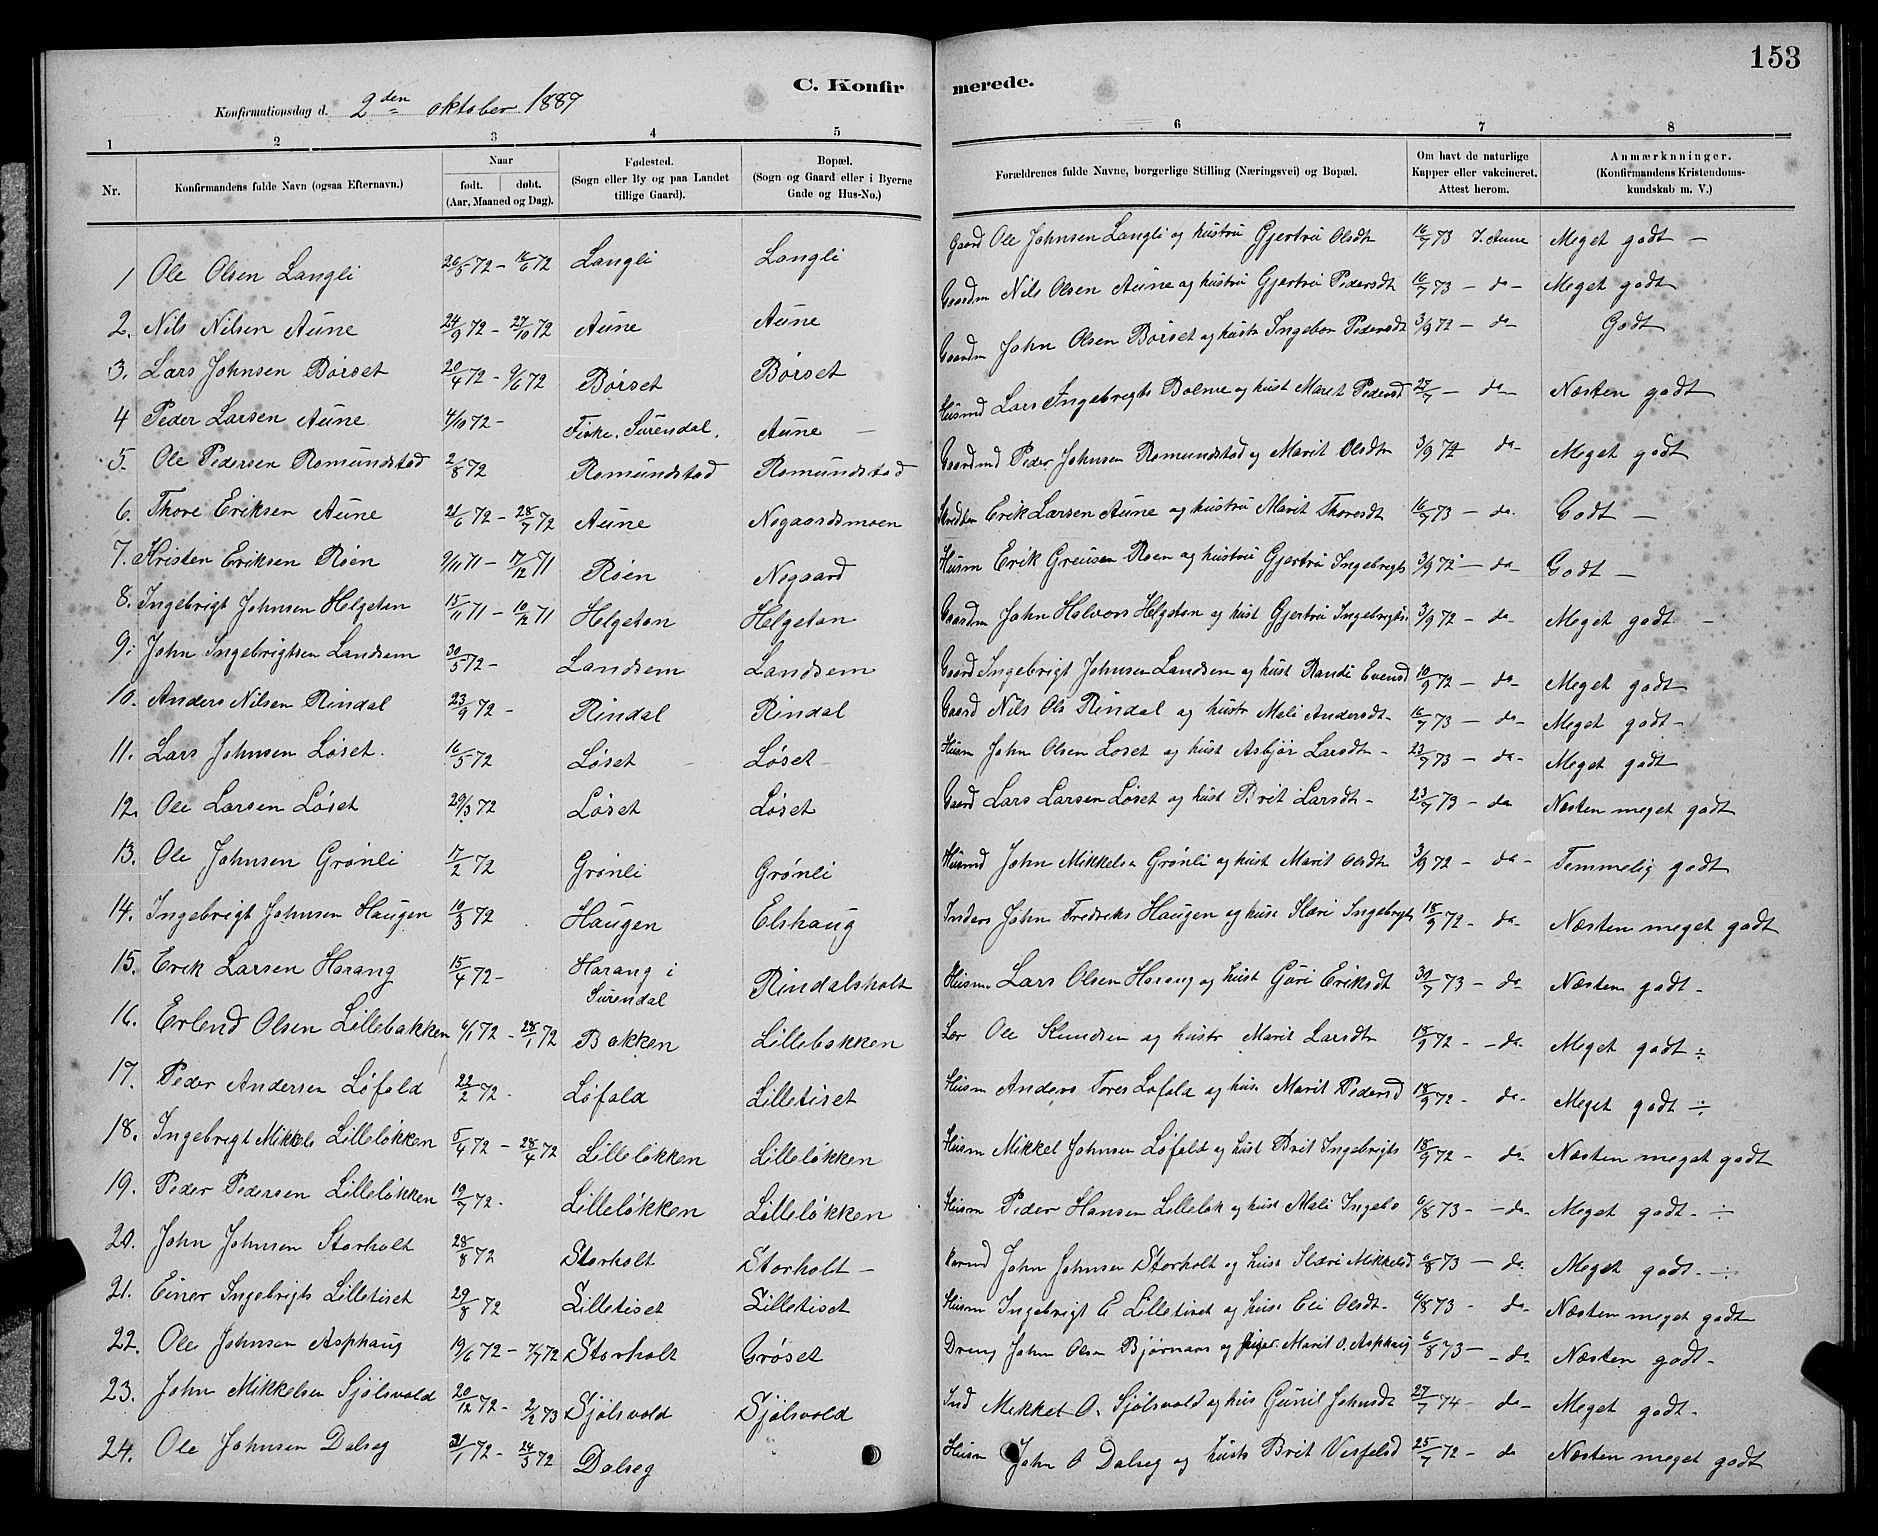 153
C. Konfirmerede.
Konfirmationsdag d. 2den oktober 1887
1 2 3 4 5 6 7 8
Nr. Konfirmandens fulde Navn (ogsaa Efternavn.) Naar født. døbt. (Aar, Maaned og Dag). Fødested. (Sogn eller By og paa Landet tillige Gaard). Bopæl. (Sogn og Gaard eller i Byerne Gade og Hus-No.) Forældrenes fulde Navne, borgerlige Stilling (Næringsvei) og Bopæl. Om havt de naturlige Kapper eller vakcineret. Attest herom. Anmærkninger. (Konfirmandens Kristendomskundskab m. V.)
1 Ole Olsen Langli 26/5 72 - 16/6 72 Langli Langli Gaard Ole Johnsen Langli og hustru Gjertru Olsdt 16/7 73 J. Aune Meget godt -
2. Nils Nilsen Aune 24/9 72 - 27/10 72 Aune Aune Gaardm Nils Olsen Aune og hustru Gjertru Pedersdt 16/7 73 - do - Meget godt
3. Lars Johnsen Börset 20/4 72 - 9/6 72 Börset Börset Gaardm John Olsen Börset og hustr Ingebor Pedersdt 3/9 72 - do Godt
4 Peder Larsen Aune 4/10 72 - Fiske, Surendal, Aune - Husmd Lars Ingebrigts Bolme og hust Marit Pedersd 27/7 - do - Næsten godt
5. Ole Pedersen Romundstad 2/8 72 Romundstad Romundstad Gaardmd Peder Johnsen Romundstad og Marit Olsdt 3/9 72 do - Meget godt
6. Thore Eriksen Aune 21/6 72 - 28/7 72 Aune Negaardsmoen Erik Larsen Aune og hustru Marit Thoresdt 16/7 73 - do. Godt -
7. Kristen Eriksen Röen 9/11 71 - 17/12 71 Röen Negaard Husm Erik Greusen Roen og hustru Gjertru Ingebrigts 3/9 72 - do - Godt -
8. Ingebrigt Johnsen Helgetan 15/11 71 - 10/12 71 Helgetan Helgetan Gaardm John Halvors Helgetan og hust Gjertru Ingebrigts 3/9 72 - do - Meget godt -
9. John Ingebrigtsen Landsem 30/5 72 - Landsem Landsem Gaard Ingebrigt Johnsen Landsem og hust Randi Evensd 10/9 72 - do - Meget godt
10. Anders Nilsen Rindal 23/9 72 - Rindal Rindal Gaard Nils Ols Rindal og hustr Mali Andersdt - 16/7 73 - do - Meget godt -
11. Lars Johnsen Løset. 16/5 72 Løset - Løset - Husm John Olsen Loset og hust Asbjør Larsdt - 23/7 73 - do - Meget godt
12. Ole Larsen Løset 29/3 72 Løset Løset Gaard Lars Larsen Løset og hust Brit Larsdt - 23/7 73 - do Næsten meget godt
13. Ole Johnsen Grönli 17/2 72 Grönli Grönli Husmd John Mikkelsn Grönli og hust Marit Olsdt 3/9 72 - do - Temmelig godt
14. Ingebrigt Johnsen Haugen 10/3 72 Haugen Elshaug Inders John Fredriks Haugen og hus Slæri Ingebrigt 18/9 72 - do - Næsten meget godt
15. Erik Larsen Harang 15/4 72 - Harang i Surendal Rindalsholt Husm Lars Olsen Harang og hust Guri Eriksdt 30/7 73 - do - Næsten godt -
16. Erlend Olsen Lillebakken 6/1 72 - 28/1 72 Bakken Lillebakken Lær Ole Knudsen og hustr Marit Larsdt 18/9 72 - - do. Meget godt ÷
17. Peder Andersen Löfald 22/2 72 - Löfald Lilletiset Husm Anders Tores Lofald og hus Marit Pedersd 18/9 72 - do - Meget godt ÷
18. Ingebrigt Mikkels Lilleløkken 5/4 72 - 28/4 72 Lilleløkken Lilleløkken Husm Mikkel Johnsen Löfald og hust Brit Ingebrigts 18/9 72 - do - Næsten meget godt
19. Peder Pedersen Lilleløkken 19/7 72 - Lilleløkken Lilleløkken Husm Peder Hansen Lilleløk og hust Mali Ingebo 6/8 73 - - do - Meget godt - ÷
20. John Johnsen Storholt 28/8 72 Storholt Storholt - John Johnsen Storholt og hust Slæri Mikkelsd 6/8 73 - do. Meget godt - ÷
21. Einer Ingebrigts Lilletiset 29/8 72 Lilletiset Lilletiset Husm Ingebrigt E Lilletiset og hus Eli Olsdt - 6/8 73 - do - Næsten meget godt
22. Ole Johnsen Asphaug 19/6 72 - 7/7 72 Storholt Gröset Dreng John Olsen Bjørnaas og pige Marit O. Asphaug 6/8 73 - - do Næsten godt -
23. John Mikkelsen Sjölsvold 20/12 72 - 2/2 73 Sjölsvold Sjölsvold Ind Mikkel O. Sjölsvold og hus Gunil Johnsdt 27/7 74 - do - Meget godt -
24. Ole Johnsen Dalseg 31/1 72 - 24/3 72 Dalseg Husm John O Dalseg og hustr Brit Vesfelsd 25/7 72 - do Næsten meget godt